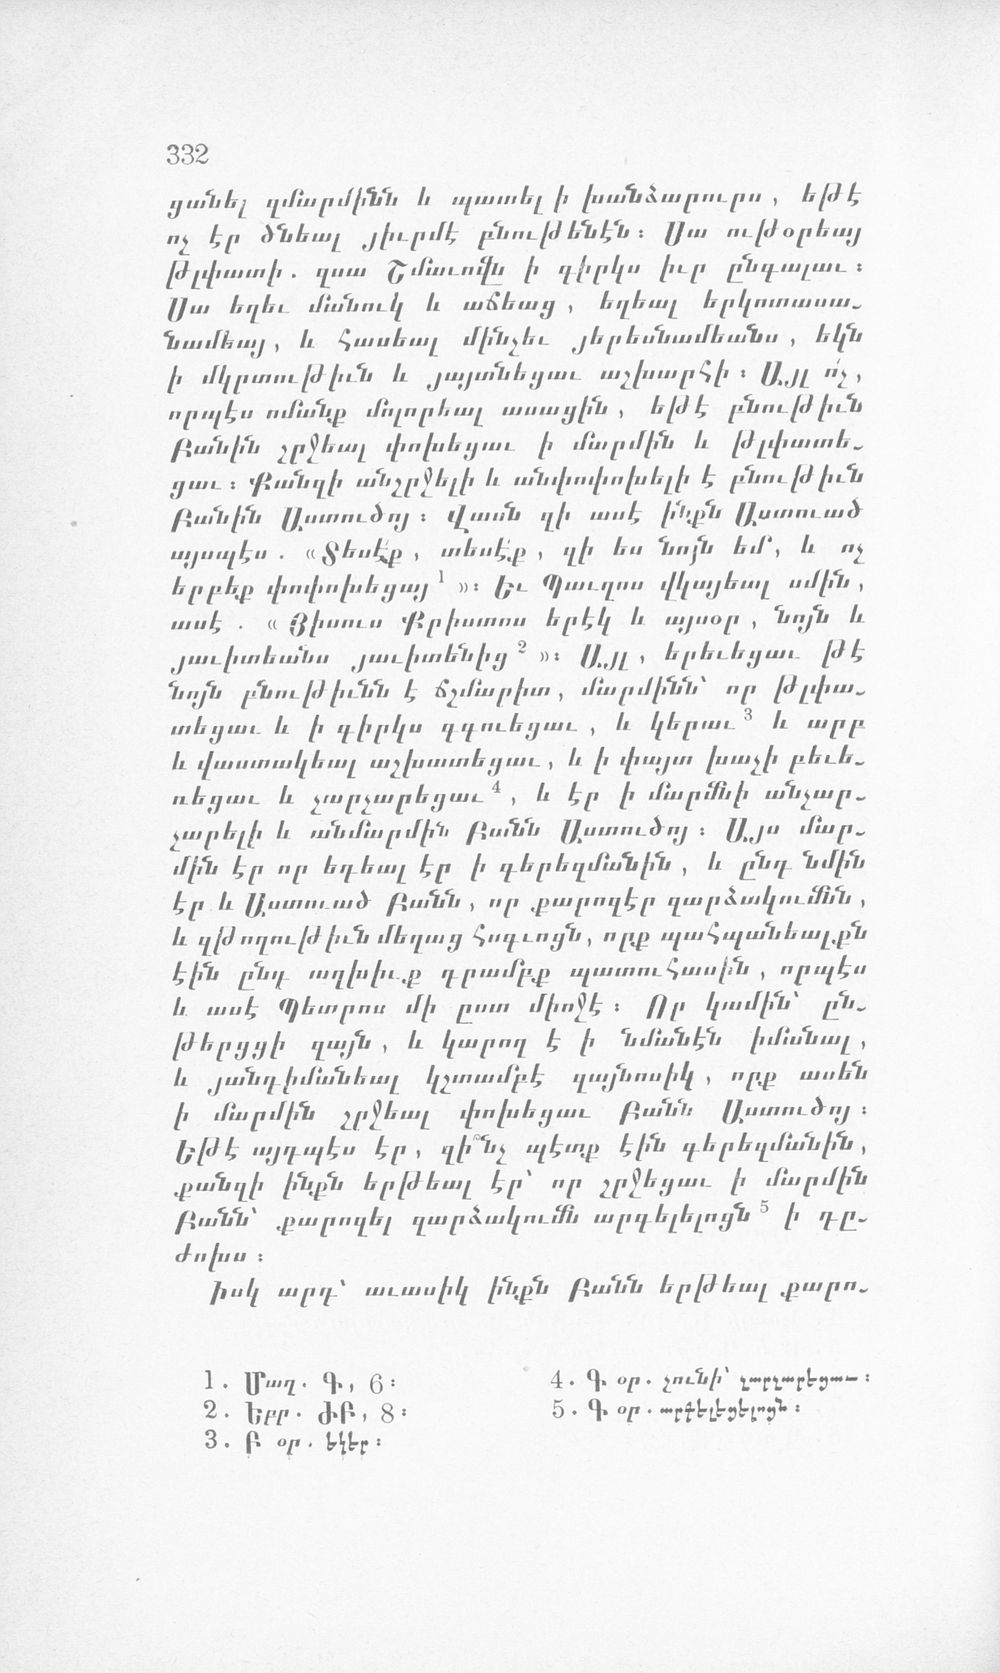 332
ցանել զմարմինն և պատել ի խանձարուրս, եթէ
ոչ էր ծնեալ յիւրմէ բնութենէն։ Սա ութօրեայ
թլփատի. զսա Շմաւոմվն ի գիրկս իւր ընգալաւ։
Սա եղեւ մանուկ և աճեաց, եղեալ երկոտասա֊
նամեայ, և հասեալ մինչեւ յերեսնամեանս, եկն
ի մկրտութիւն և յայտնեցաւ աշխարհի։ Այլ ո՛չ,
որպէս ոմանք մոլորեալ ասացին, եթէ բնութիւն
Բանին շրջեալ փոխեցաւ ի մարմին և թլփատե֊
ցաւ։ Քանզի անշրջելի և անփոփոխելի է բնութիւն
Բանին Աստուծոյ։ Վասն զի ասէ ինքն Աստուած
այսպէս. «Տեսէ՛ք, տեսէ՛ք, զի ես նոյն եմ, և ոչ
երբեք փոփոխեցայ 1»։ Եւ Պաւղոս վկայեալ սմին,
ասէ. «Յիսուս Քրիստոս երէկ և այսօր, նոյն և
յաւիտեանս յաւիտենից 2»։ Այլ, երեւեցաւ թէ
նոյն բնութիւնն է ճշմարիտ, մարմինն՝ որ թլփա֊
տեցաւ և ի գիրկս գգուեցաւ, և կերաւ 3 և արբ
և վաստակեալ աշխատեցաւ, և ի փայտ խաչի բեւե֊
ռեցաւ և չարչարեցաւ 4, և էր ի մարմնի անչար֊
չարելի և անմարմին Բանն Աստուծոյ։ Այս մար֊
մին էր որ եդեալ էր ի գերեզմանին, և ընդ նմին
էր և Աստուած Բանն, որ քարոզէր զարձակումն,
և զթողութիւն մեղաց հոգւոցն, որք պահպանեալքն
էին ընդ աղխիւք դրամբք պատուհասին, որպէս
և ասէ Պետրոս մի ըստ միոջէ։ Որ կամին՝ ըն֊
թերցցի զայն, և կարող է ի նմանէն իմանալ,
և յանդիմանեալ կշտամբէ զայնոսիկ, որք ասեն
ի մարմին շրջեալ փոխեցաւ Բանն Աստուծոյ։
Եթէ այդպէս էր, զի՞նչ պէտք էին գերեզմանին,
քանզի ինքն երթեալ էր՝ որ շրջեցաւ ի մարմին
Բանն՝ քարոզել զարձակումն արգելելոցն 5 ի դը֊
ժոխս։
Իսկ արդ՝ աւասիկ ինքն Բանն երթեալ քարո֊
1. Մաղ. Գ, 6։
2. Եբր. ԺԲ, 8։
3. Բ օր. եկեր։
4. Գ օր. չունի՝ չարչարեցաւ։
5. Գ օր. արգելեցելոցն։